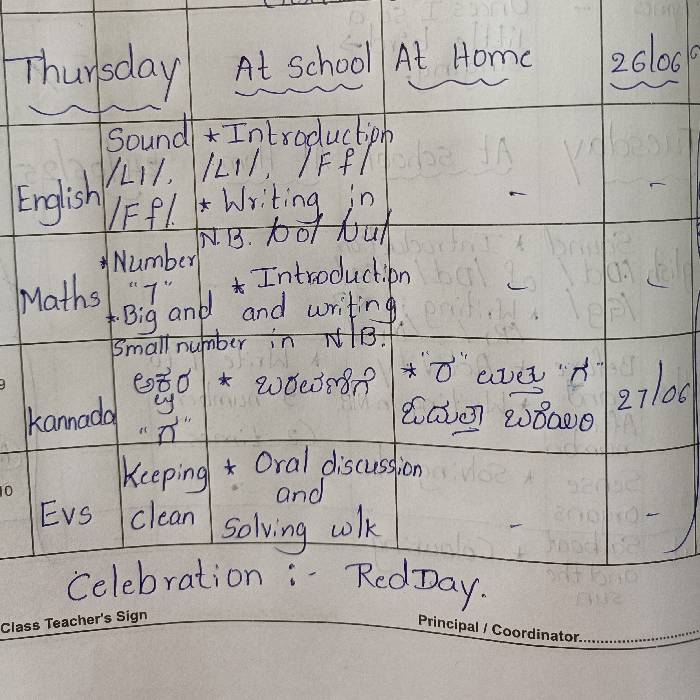 Thursday At School At Home 26/06
English
Sound
/Ll/,
/Ff/.
* Introduction
/Ll/, /Ff/
* Writing in
N.B.
-
-
Maths
* Number
"7"
* Big and
Small number
* Introduction
and writing
in N.B.
-
-
Kannada
ಅಕ್ಷರ
"ಗ"
* ಬರವಣಿಗೆ
* "ರ" ಮತ್ತು "ಗ"
27/06
EVS
Keeping
clean
* Oral discussion
and
Solving w/k
-
-
Celebration :- Red Day.
Class Teacher's Sign
Principal / Coordinator